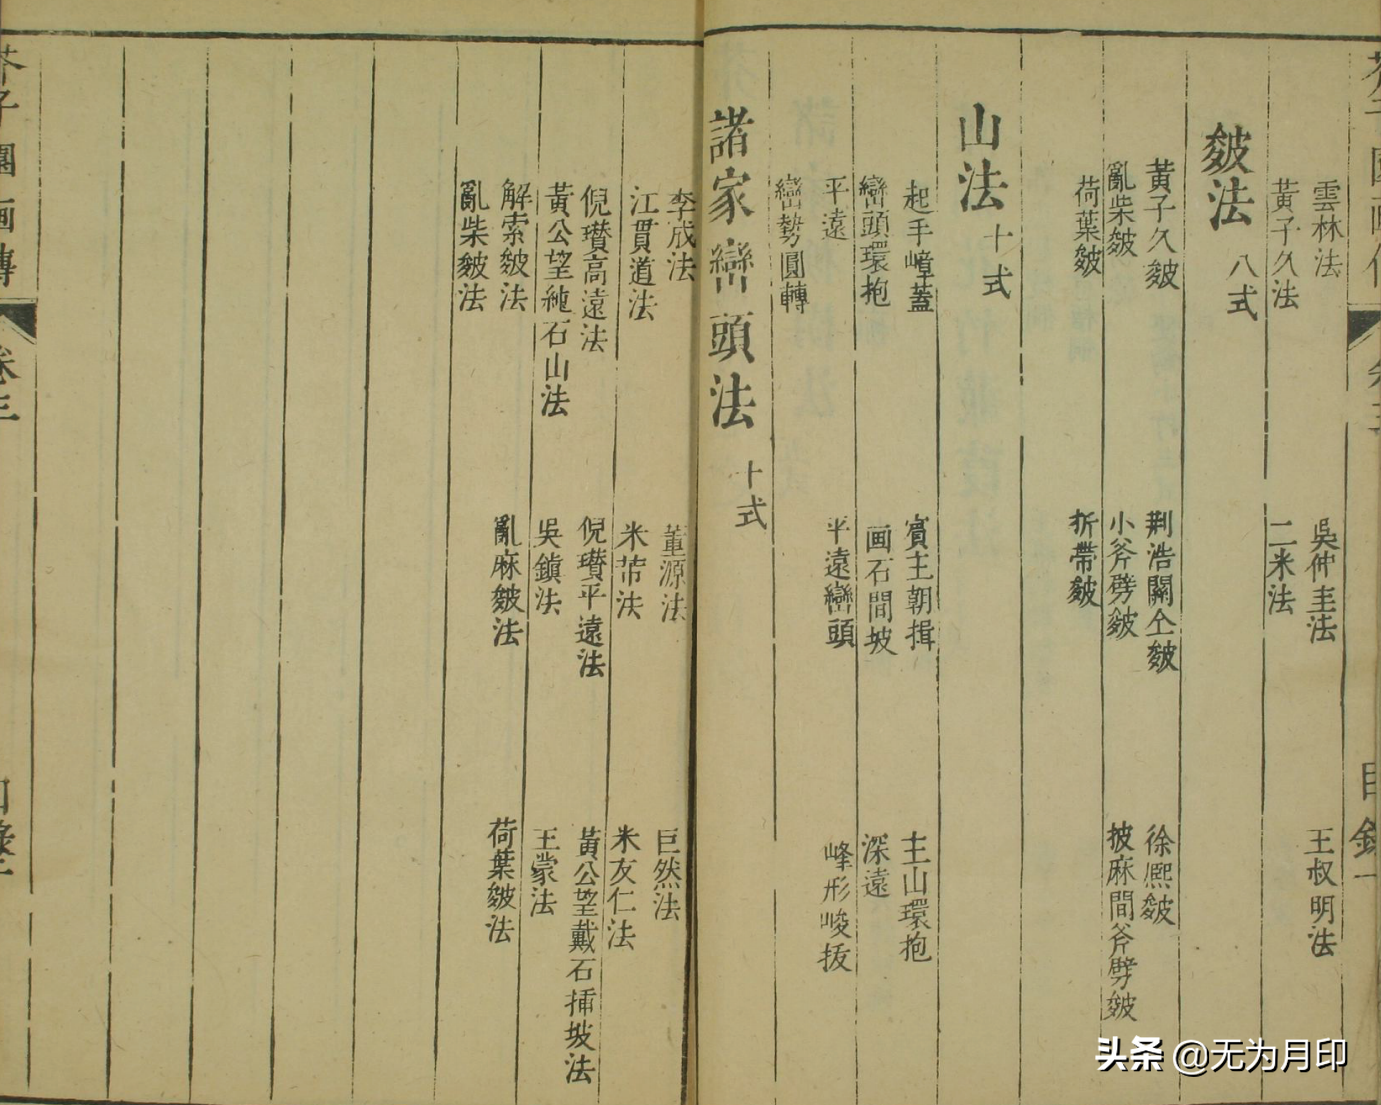 雲林法 吳仲圭法 王叔明法
黃子久法 二米法
皴法 八式
黃子久皴 荆浩關仝皴 徐熙皴
亂柴皴 小斧劈皴 披麻間斧劈皴
荷葉皴 折帶皴
山法 十式
起手嶂蓋 賓主朝揖 主山環抱
巒頭環抱 画石間坡 深遠
平遠 平遠巒頭 峰形峻拔
巒勢圓轉
諸家巒頭法 十式
李成法 董源法 巨然法
江貫道法 米芾法 米友仁法
倪瓚高遠法 倪瓚平遠法 黃公望戴石挿坡法
黃公望純石山法 吳鎮法 王蒙法
解索皴法 亂麻皴法 荷葉皴法
亂柴皴法
芥子園画傳 卷三 目錄二
头条 @无为月印